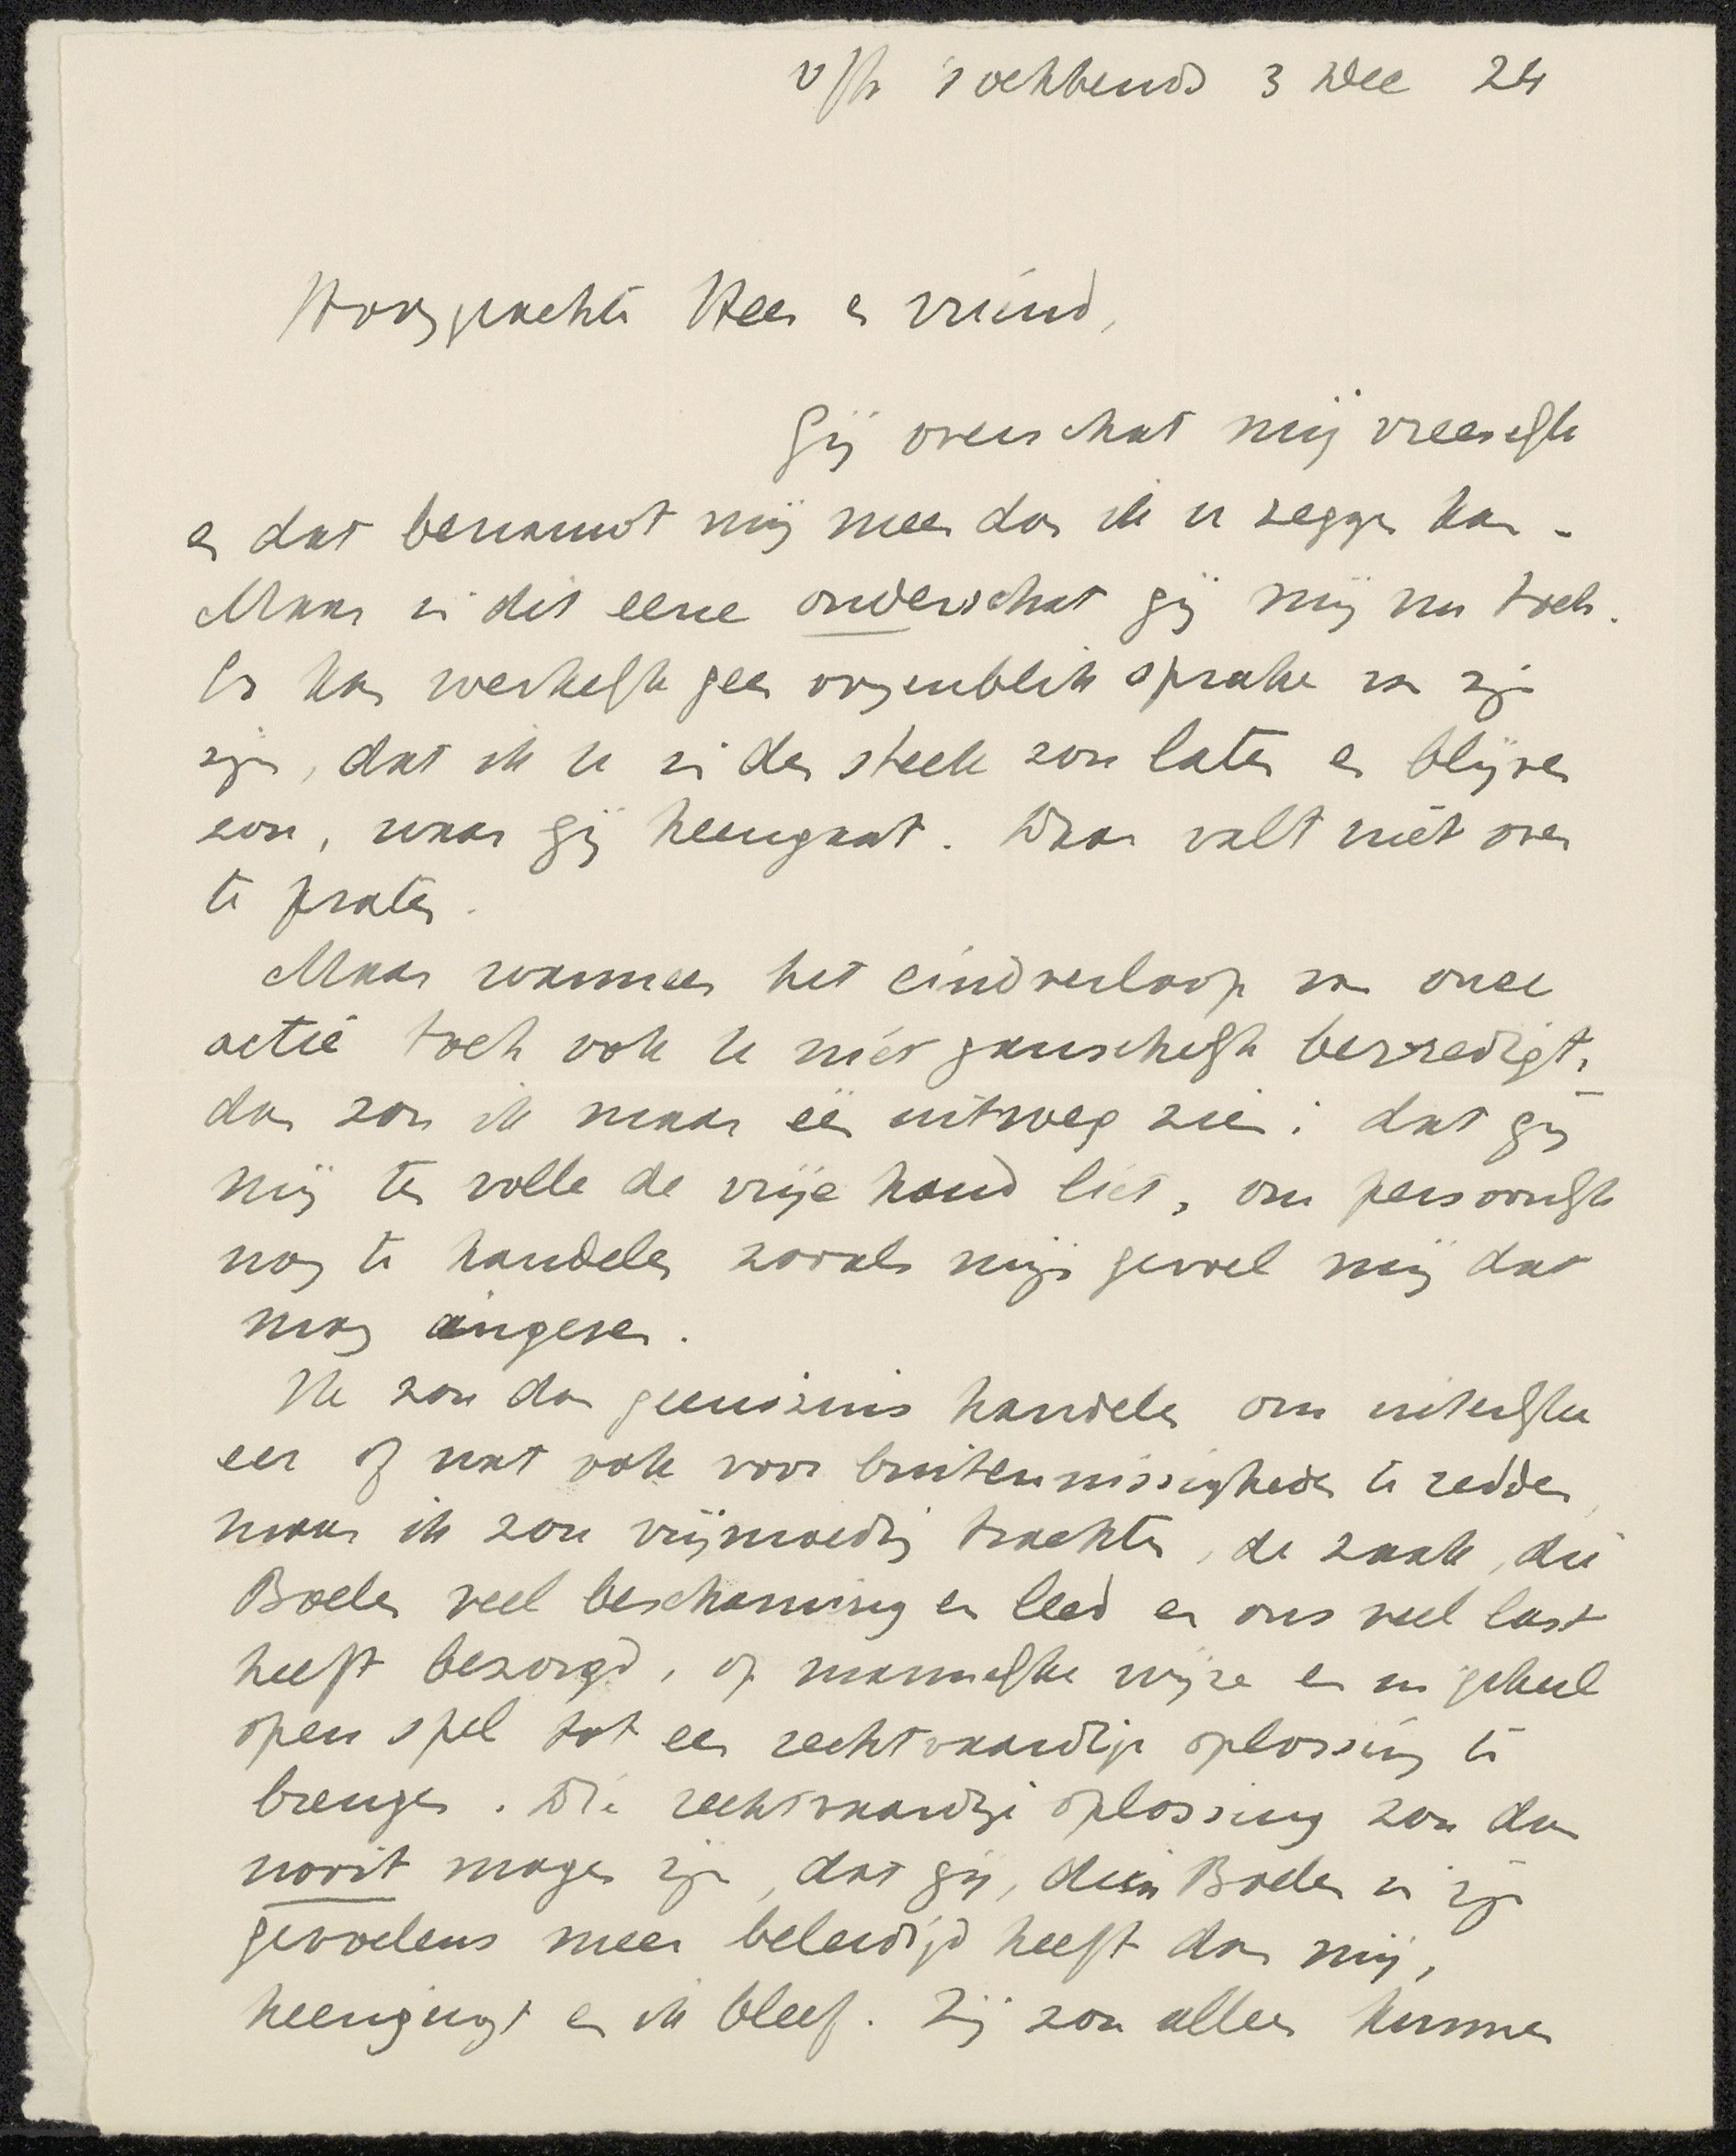 's ochtends 3 Dec 24
Hooggeachte Heer en vriend,
Gij overschat mij vreeselijk
en dat benauwt mij meer dan ik u zeggen kan.
Maar in dit eene onderschat gij mij nu toch.
Er kan werkelijk geen oogenblik sprake van zijn
zijn, dat ik u in den steek zou laten en blijven
zou, waar gij heengaat. Daar valt niet over
te praten.
Maar wanneer het eindverloop van onze
actie toch ook u niet ganschelijk bevredigt,
dan zou ik maar één uitweg zien: dat gij
mij ten volle de vrije hand liet, om persoonlijk
nog te handelen zooals mijn gevoel mij dat
mag ingeven.
Ik zou dan geenszins handelen om uiterlijke
eer of wat ook voor buitenissigheden te redden,
maar ik zou vrijmoedig trachten, de zaak, die
Boelen veel beschaming en leed en ons veel last
heeft bezorgd, op mannelijke wijze en in geheel
open spel tot een rechtvaardige oplossing te
brengen. Die rechtvaardige oplossing zou dan
nooit mogen zijn, dat gij, dien Boelen in zijn
gevoelens meer beleedigd heeft dan mij,
heengingt en ik bleef. Zij zou alleen kunnen